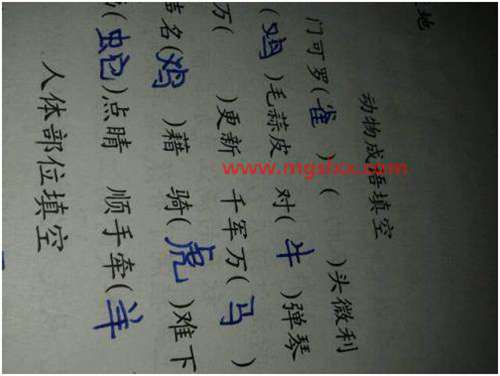 地
动物成语填空
门可罗(雀) ( )头微利
(鸡)毛蒜皮 对(牛)弹琴
万( )更新 千军万(马)
名(鸡)藉 骑(虎)难下
(蛇)点睛 顺手牵(羊
人体部位填空
www.mgslxx.com